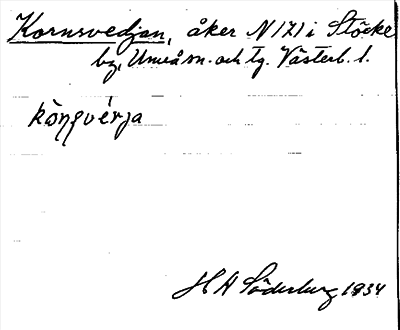 Kornsvedjan, åker N 171 i Stöcke
by, Umeå sn. och tg. Västerb. l.
H A Söderberg 1934